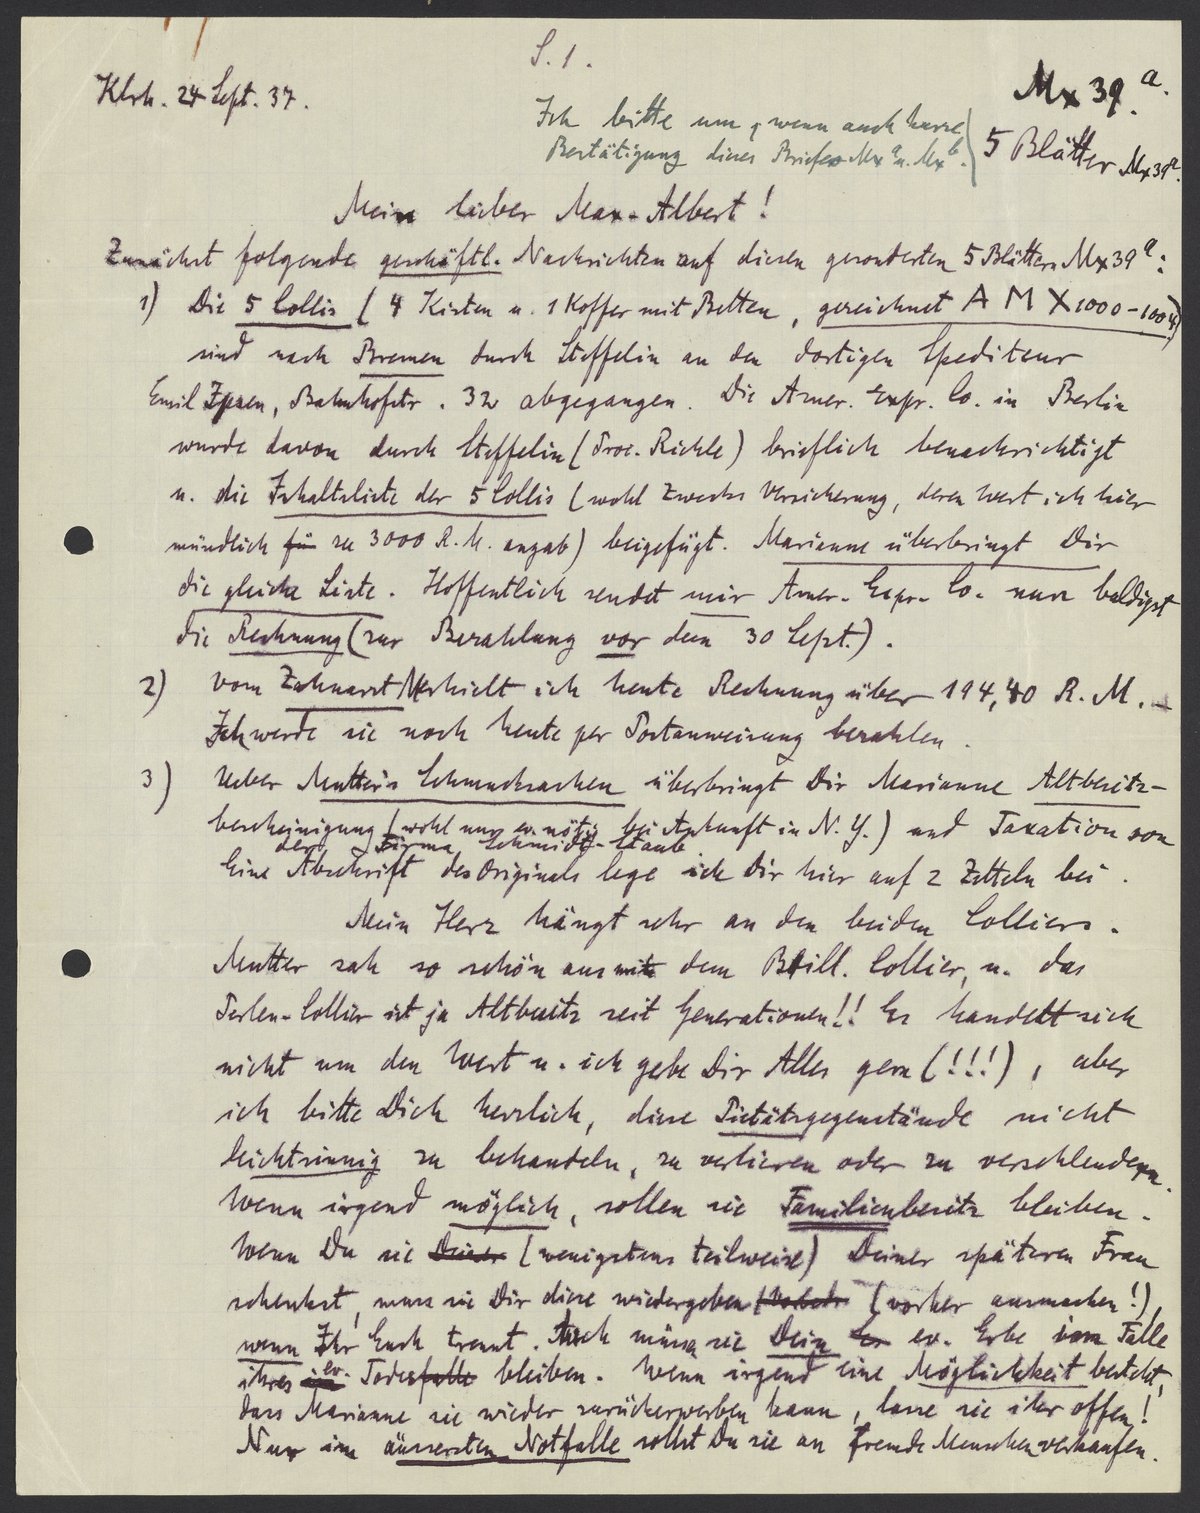 S. 1.
Klrh. 24 Sept. 37.
Mx 39 a.
Ich bitte um, wenn auch kurze
Bestätigung dieses Briefes Mx a u. Mx b.
5 Blätter Mx 39 a.
Mein lieber Max-Albert!
Zunächst folgende geschäftl. Nachrichten auf diesen gesonderten 5 Blättern Mx 39 a:
1) Die 5 Collis (4 Kisten u. 1 Koffer mit Betten, gezeichnet A M X 1000-1004)
sind nach Bremen durch Steffelin an den dortigen Spediteur
Emil Ipsen, Bahnhofstr. 32 abgegangen. Die Amer. Expr. Co. in Berlin
wurde davon durch Steffelin (Proc. Richle) brieflich benachrichtigt
u. die Inhaltsliste der 5 Collis (wohl zwecks Versicherung, deren Wert ich hier
mündlich für zu 3000 R.M. angab) beigefügt. Marianne überbringt Dir
die gleiche Liste. Hoffentlich sendet mir Amer. Expr. Co. nun baldigst
die Rechnung (zur Bezahlung vor dem 30 Sept.).
2) Vom Zahnarzt erhielt ich heute Rechnung über 194,40 R. M.
Ich werde sie noch heute per Postanweisung bezahlen.
3) Ueber Mutter's Schmucksachen überbringt Dir Marianne Altbesitz-
bescheinigung (wohl nur ev. nötig bei Ankunft in N. Y.) und Taxation von
der Firma Schmidt-Staub
Eine Abschrift des Originals lege ich Dir hier auf 2 Zetteln bei.
Mein Herz hängt sehr an den beiden Colliers.
Mutter sah so schön aus mit dem Brill. Collier, u. das
Perlen-Collier ist ja Altbesitz seit Generationen!! Es handelt sich
nicht um den Wert u. ich gebe Dir Alles gern (!!!), aber
ich bitte Dich herzlich, diese Pietätsgegenstände nicht
leichtsinnig zu behandeln, zu verlieren oder zu verschleudern.
Wenn irgend möglich, sollen sie Familienbesitz bleiben.
Wenn Du sie Deiner (wenigstens teilweise) Deiner späteren Frau
schenkst, muss sie Dir diese wiedergeben (vorher ausmachen!),
wenn Ihr Euch trennt. Auch müssen sie Dein ev. Erbe im Falle
ihres ev. Todesfalle bleiben. Wenn irgend eine Möglichkeit besteht,
dass Marianne sie wieder zurückerwerben kann, lasse sie ihr offen!
Nur im äussersten Notfalle sollst Du sie an fremde Menschen verkaufen.